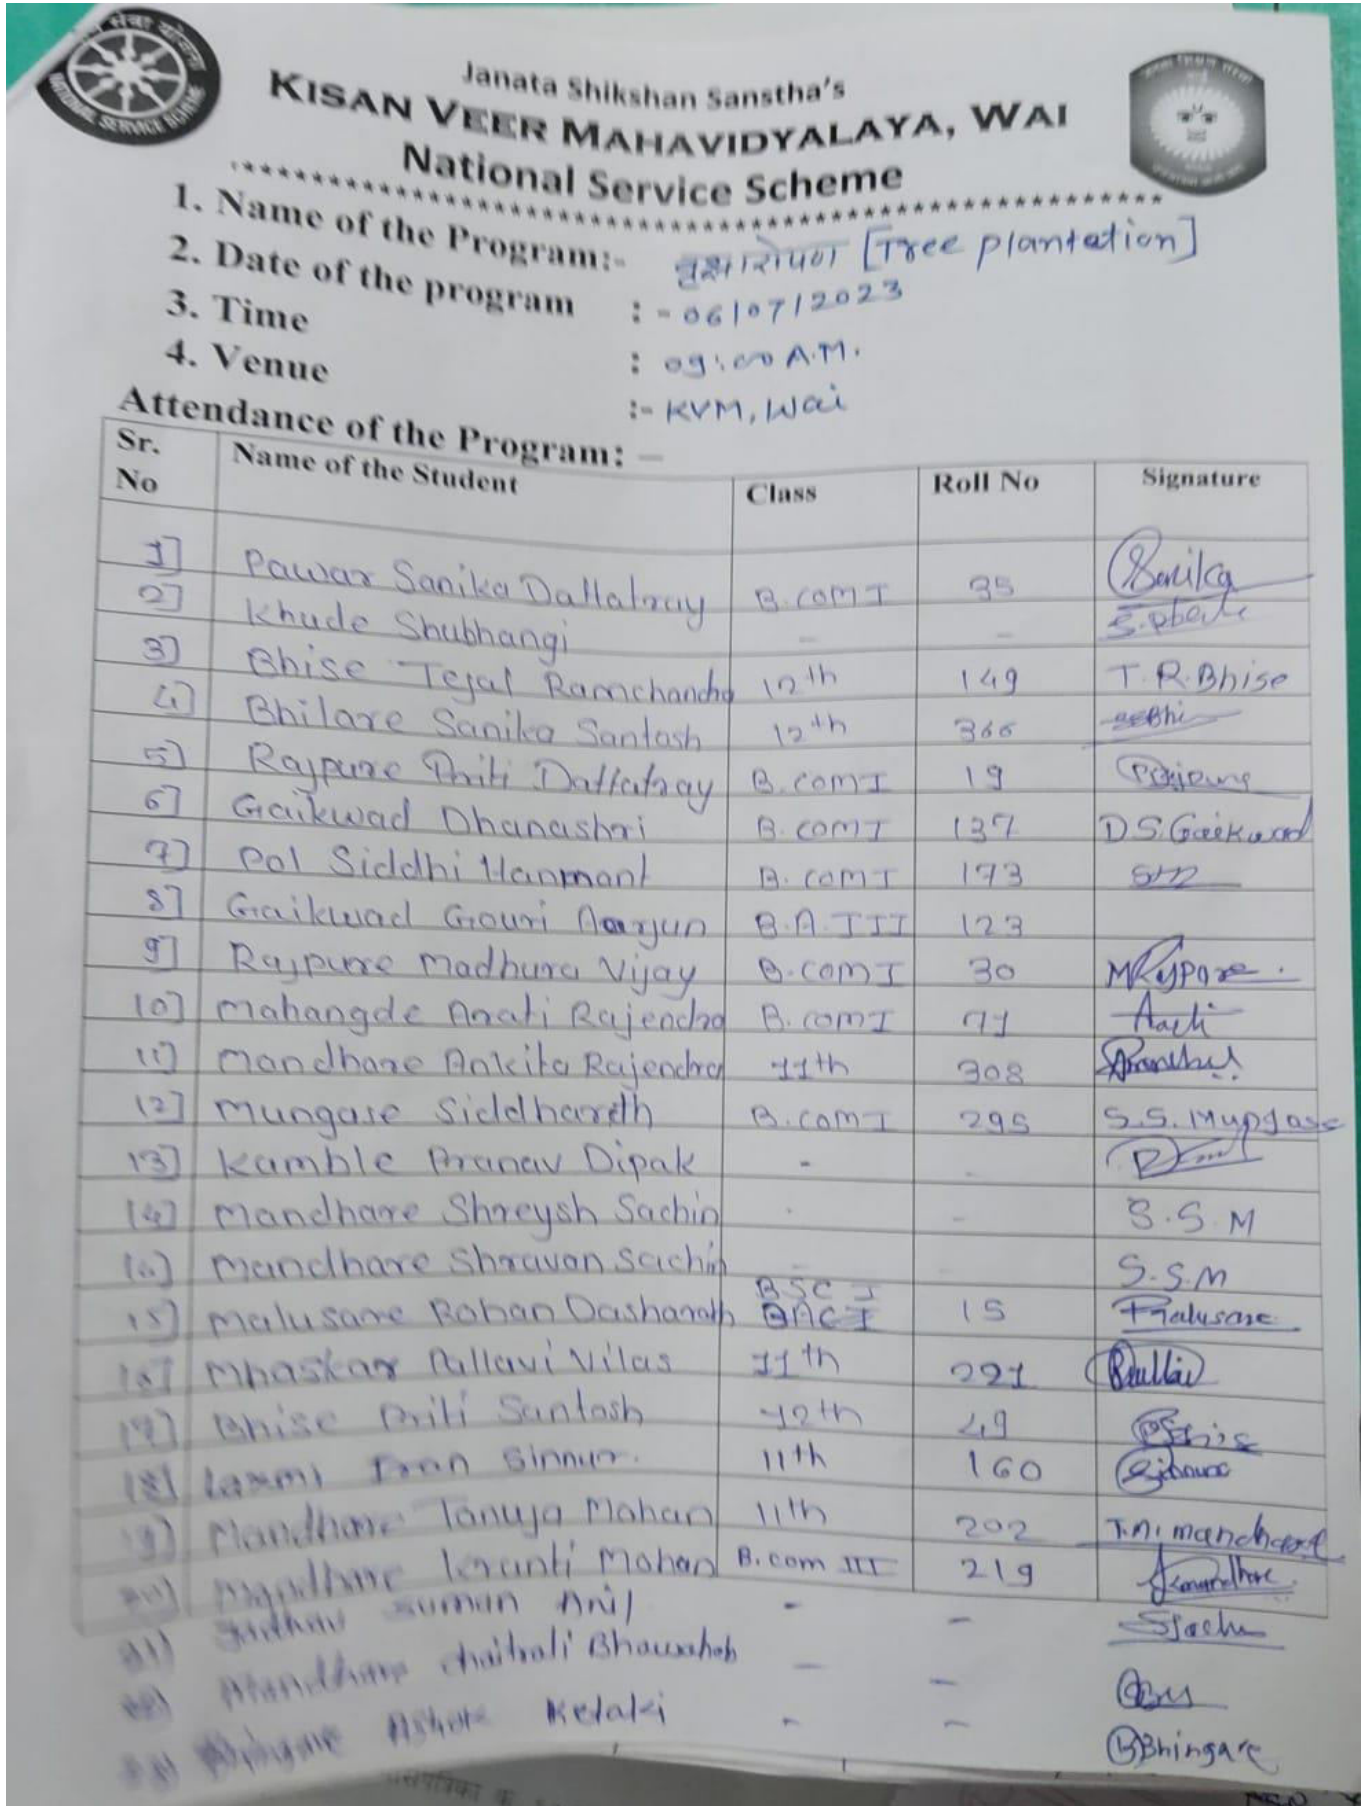 NATIONAL SERVICE SCHEME
Janata Shikshan Sanstha's
KISAN VEER MAHAVIDYALAYA, WAI
National Service Scheme
1. Name of the Program:- वृक्षारोपण [Tree plantation]
2. Date of the program : - 06/07/2023
3. Time : 09:00 A.M.
4. Venue :- KVM, Wai
Attendance of the Program: –
Sr. No Name of the Student Class Roll No Signature
1] Pawar Sanika Dattatray B.com I 35 Sanika
2] Khude Shubhangi - -
3] Bhise Tejal Ramchandra 12th 149 T.R.Bhise
4] Bhilare Sanika Santosh 12th 366
5] Rajpure Priti Dattatray B.com I 19
6] Gaikwad Dhanashri B.com I 137 D.S.Gaikwad
7] Pol Siddhi Hanmant B.com I 173
8] Gaikwad Gouri Aarjun B.A.III 123
9] Rajpure Madhura Vijay B.com I 30 MRajpore.
10] Mahangde Arati Rajendra B.com I 71 Aarti
11] Mandhare Ankita Rajendra 11th 308
12] Mungase Siddharth B.com I 295 S.S.Mungase
13] Kamble Pranav Dipak - -
14] Mandhare Shreysh Sachin - - S.S.M
Mandhare Shravan Sachin - - S.S.M
15] Malusare Rohan Dasharath BSC I 15 Malusare
16] Mhaskar Pallavi Vilas 11th 221 Pallavi
17] Bhise Priti Santosh 12th 49
18] Laxmi Sinnur. 11th 160
19] Mandhare Tanuja Mohan 11th 202 T.M.mandhare
20] Mandhare Kranti Mohan B.com III 219
21] Jadhav Suman Anil - -
Mandhare Chaitrali Bhausaheb - -
Bhingare Ashok Ketaki - - Bhingare